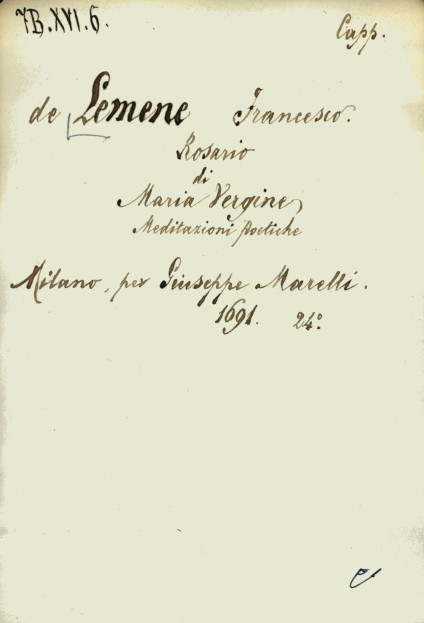 7B.XVI.6.
Capp.
de Lemene Francesco.
Rosario
di
Maria Vergine
Meditazioni poetiche
Milano, per Giuseppe Marelli.
1691. 24°.